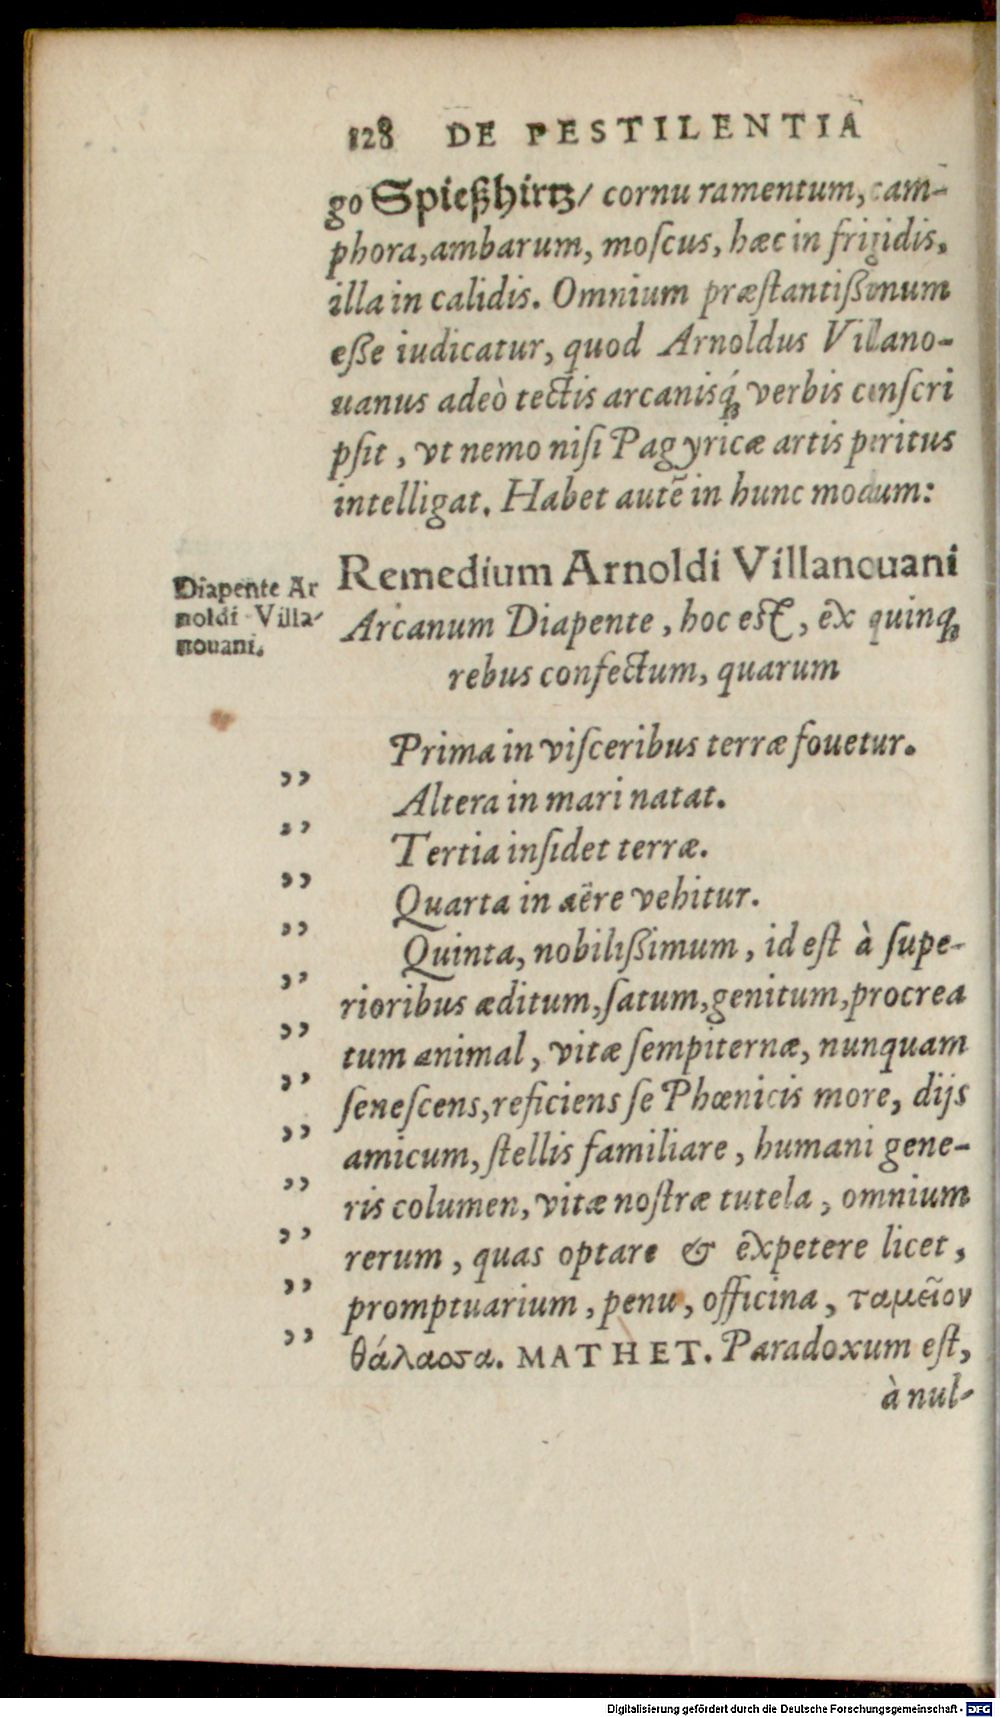 128 DE PESTILENTIA
go Spießhirtz/ cornu ramentum, cam-
phora, ambarum, moſcus, hæc in frigidis,
illa in calidis. Omnium præſtantißimum
eße iudicatur, quod Arnoldus Villano-
uanus adeò tectis arcanisq́; verbis conſcri
pſit, vt nemo niſi Pagyricæ artis peritus
intelligat. Habet autē in hunc modum:
Diapente Ar
noldi Villa-
nouani.
Remedium Arnoldi Villanouani
Arcanum Diapente, hoc est, ex quinq;
rebus confectum, quarum
Prima in viſceribus terræ fouetur.
„ Altera in mari natat.
„ Tertia inſidet terræ.
„ Quarta in aëre vehitur.
„ Quinta, nobilißimum, id eſt à ſupe-
„ rioribus æditum, ſatum, genitum, procrea
„ tum animal, vitæ ſempiternæ, nunquam
„ ſeneſcens, reficiens ſe Phœnicis more, dijs
„ amicum, ſtellis familiare, humani gene-
„ ris columen, vitæ noſtræ tutela, omnium
„ rerum, quas optare & expetere licet,
„ promptuarium, penu, officina, ταμεῖον
„ θάλαοσα. MATHET. Paradoxum eſt,
à nul-
Digitalisierung gefördert durch die Deutsche Forschungsgemeinschaft - DFG